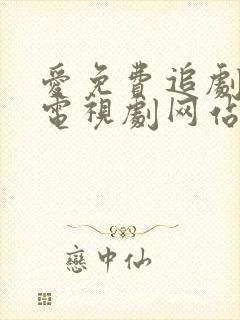 愛免費追劇
電視劇网佔
戀中仙